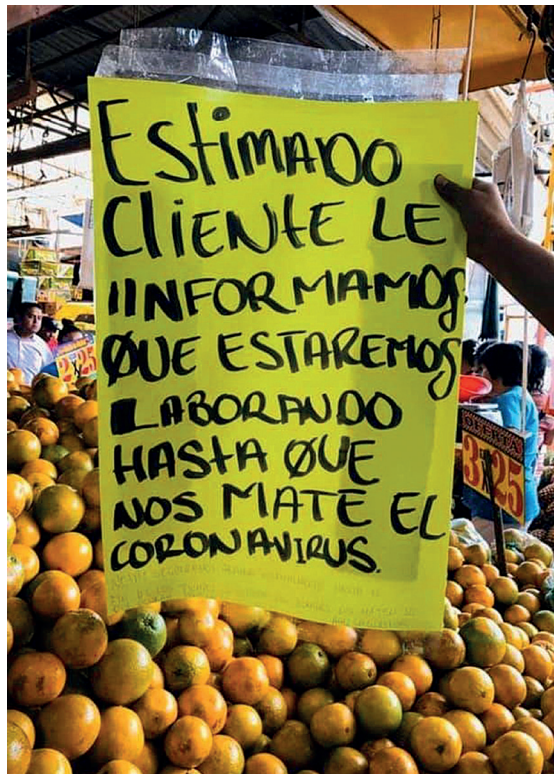 EStiMADO
CliENtE LE
iiNFORMAMOS
QUE ESTAREMOS
LABORANDO
HAStA QUE
NOS MATE EL
CORONAVIRUS.
2x25
3x25